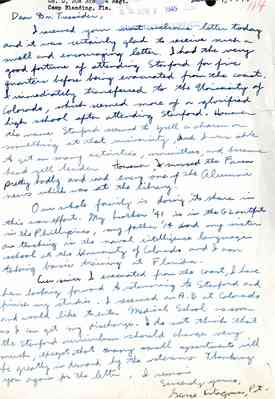 Camp Blanding, Fla.
1945
Dear Dr. Tresidder:
I received your most welcome letter today
and it was certainly great to receive such a
swell and encouraging letter. I had the very
good fortune of attending Stanford for five
quarters before being evacuated from the coast.
I immediately transferred to the University of
Colorado which seemed more of a glorified
high school after attending Stanford. However
the name Stanford seemed to spell a charm or
something at that university. And I was able
to get in many activities, and became
head yell leader. I missed the Farm
pretty badly and read every one of the Alumni
news which was at the library.
Our whole family is doing its share in
this war effort. My brother '41 is in the
in the Phillipines, my father '14 and my sister
are teaching in the naval intelligence language
school at the University of Colorado and I am
taking basic training at Florida.
Ever since I evacuated from the coast, I have
been looking forward to returning to Stanford and
finish my studies. I received an A.B at Colorado
and would like to enter Medical School as soon
as I can get my discharge. I do not think that
the Stanford curriculum should change very
much, except that many small apartments will
be greatly in demand by the veterans. Thanking
you again for the letter. I remain
Sincerely yours,